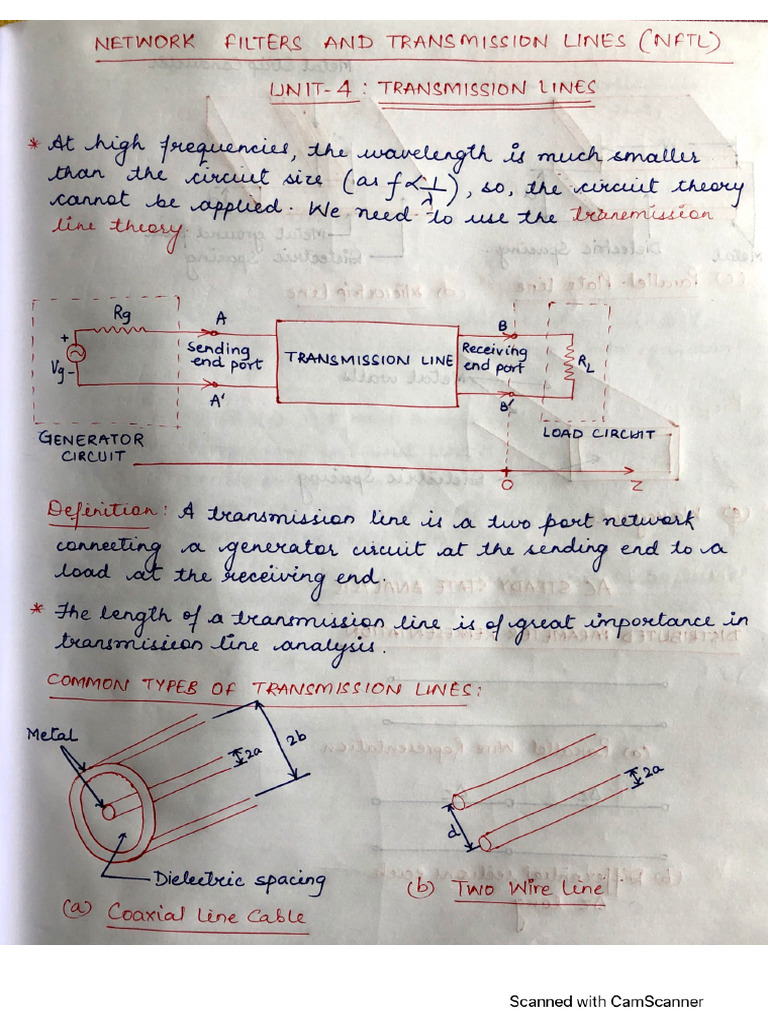 NETWORK FILTERS AND TRANSMISSION LINES (NFTL)
UNIT-4 : TRANSMISSION LINES
* At high frequencies, the wavelength is much smaller
than the circuit size (as f ∝ 1/λ), so, the circuit theory
cannot be applied. We need to use the transmission
line theory.
Rg
A
B
+
Vg
-
Sending
end port
TRANSMISSION LINE
Receiving
end port
RL
A'
B'
GENERATOR
CIRCUIT
LOAD CIRCUIT
0
Z
Definition: A transmission line is a two port network
connecting a generator circuit at the sending end to a
load at the receiving end.
* The length of a transmission line is of great importance in
transmission line analysis.
COMMON TYPES OF TRANSMISSION LINES:
Metal
2a
2b
2a
d
Dielectric spacing
(a) Coaxial Line Cable
(b) Two Wire Line
Scanned with CamScanner